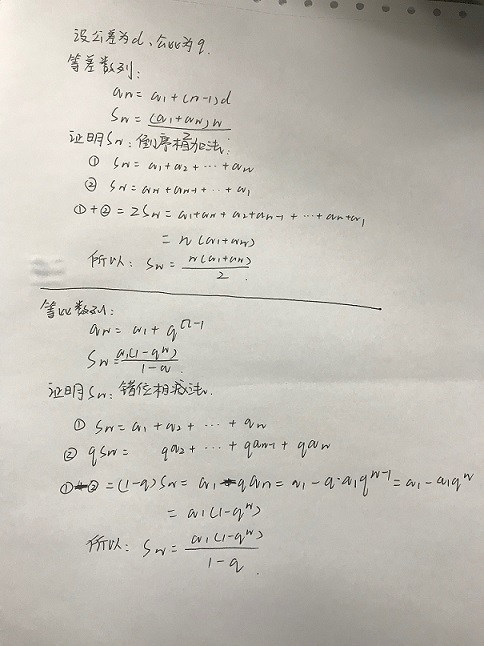 设公差为d、公比为q.
等差数列:
an = a1 + (n-1)d
Sn = (a1+an)n
证明Sn: 倒序相加法:
① Sn = a1 + a2 + ··· + an
② Sn = an + an-1 + ·· + a1
① + ② = 2Sn = a1+an + a2+an-1 + ··· + an+a1
= n(a1+an)
所以: Sn = n(a1+an) / 2
等比数列:
an = a1 + q^n-1
Sn = a1(1-q^n) / 1-q
证明Sn: 错位相减法.
① Sn = a1 + a2 + ··· + an
② qSn = qa2 + ··· + qan-1 + qan
①-② = (1-q)Sn = a1 - qan = a1 - q·a1q^n-1 = a1 - a1q^n
= a1(1-q^n)
所以: Sn = a1(1-q^n) / 1-q.